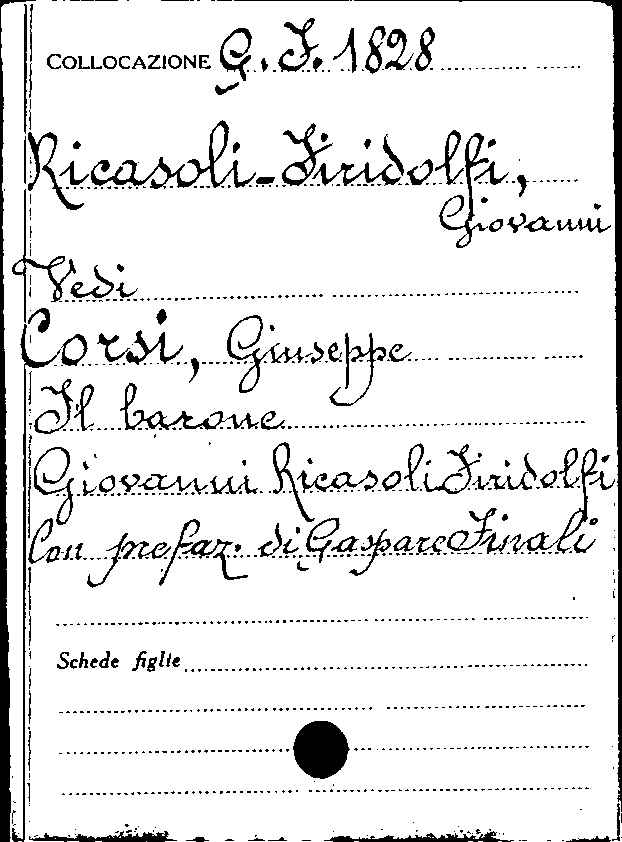 COLLOCAZIONE G. F. 1828
Ricasoli-Firidolfi,
Giovanni
Vedi
Corsi, Giuseppe
Il barone
Giovanni Ricasoli Firidolfi
Con prefaz. di Gaspare Finali
Schede figlie